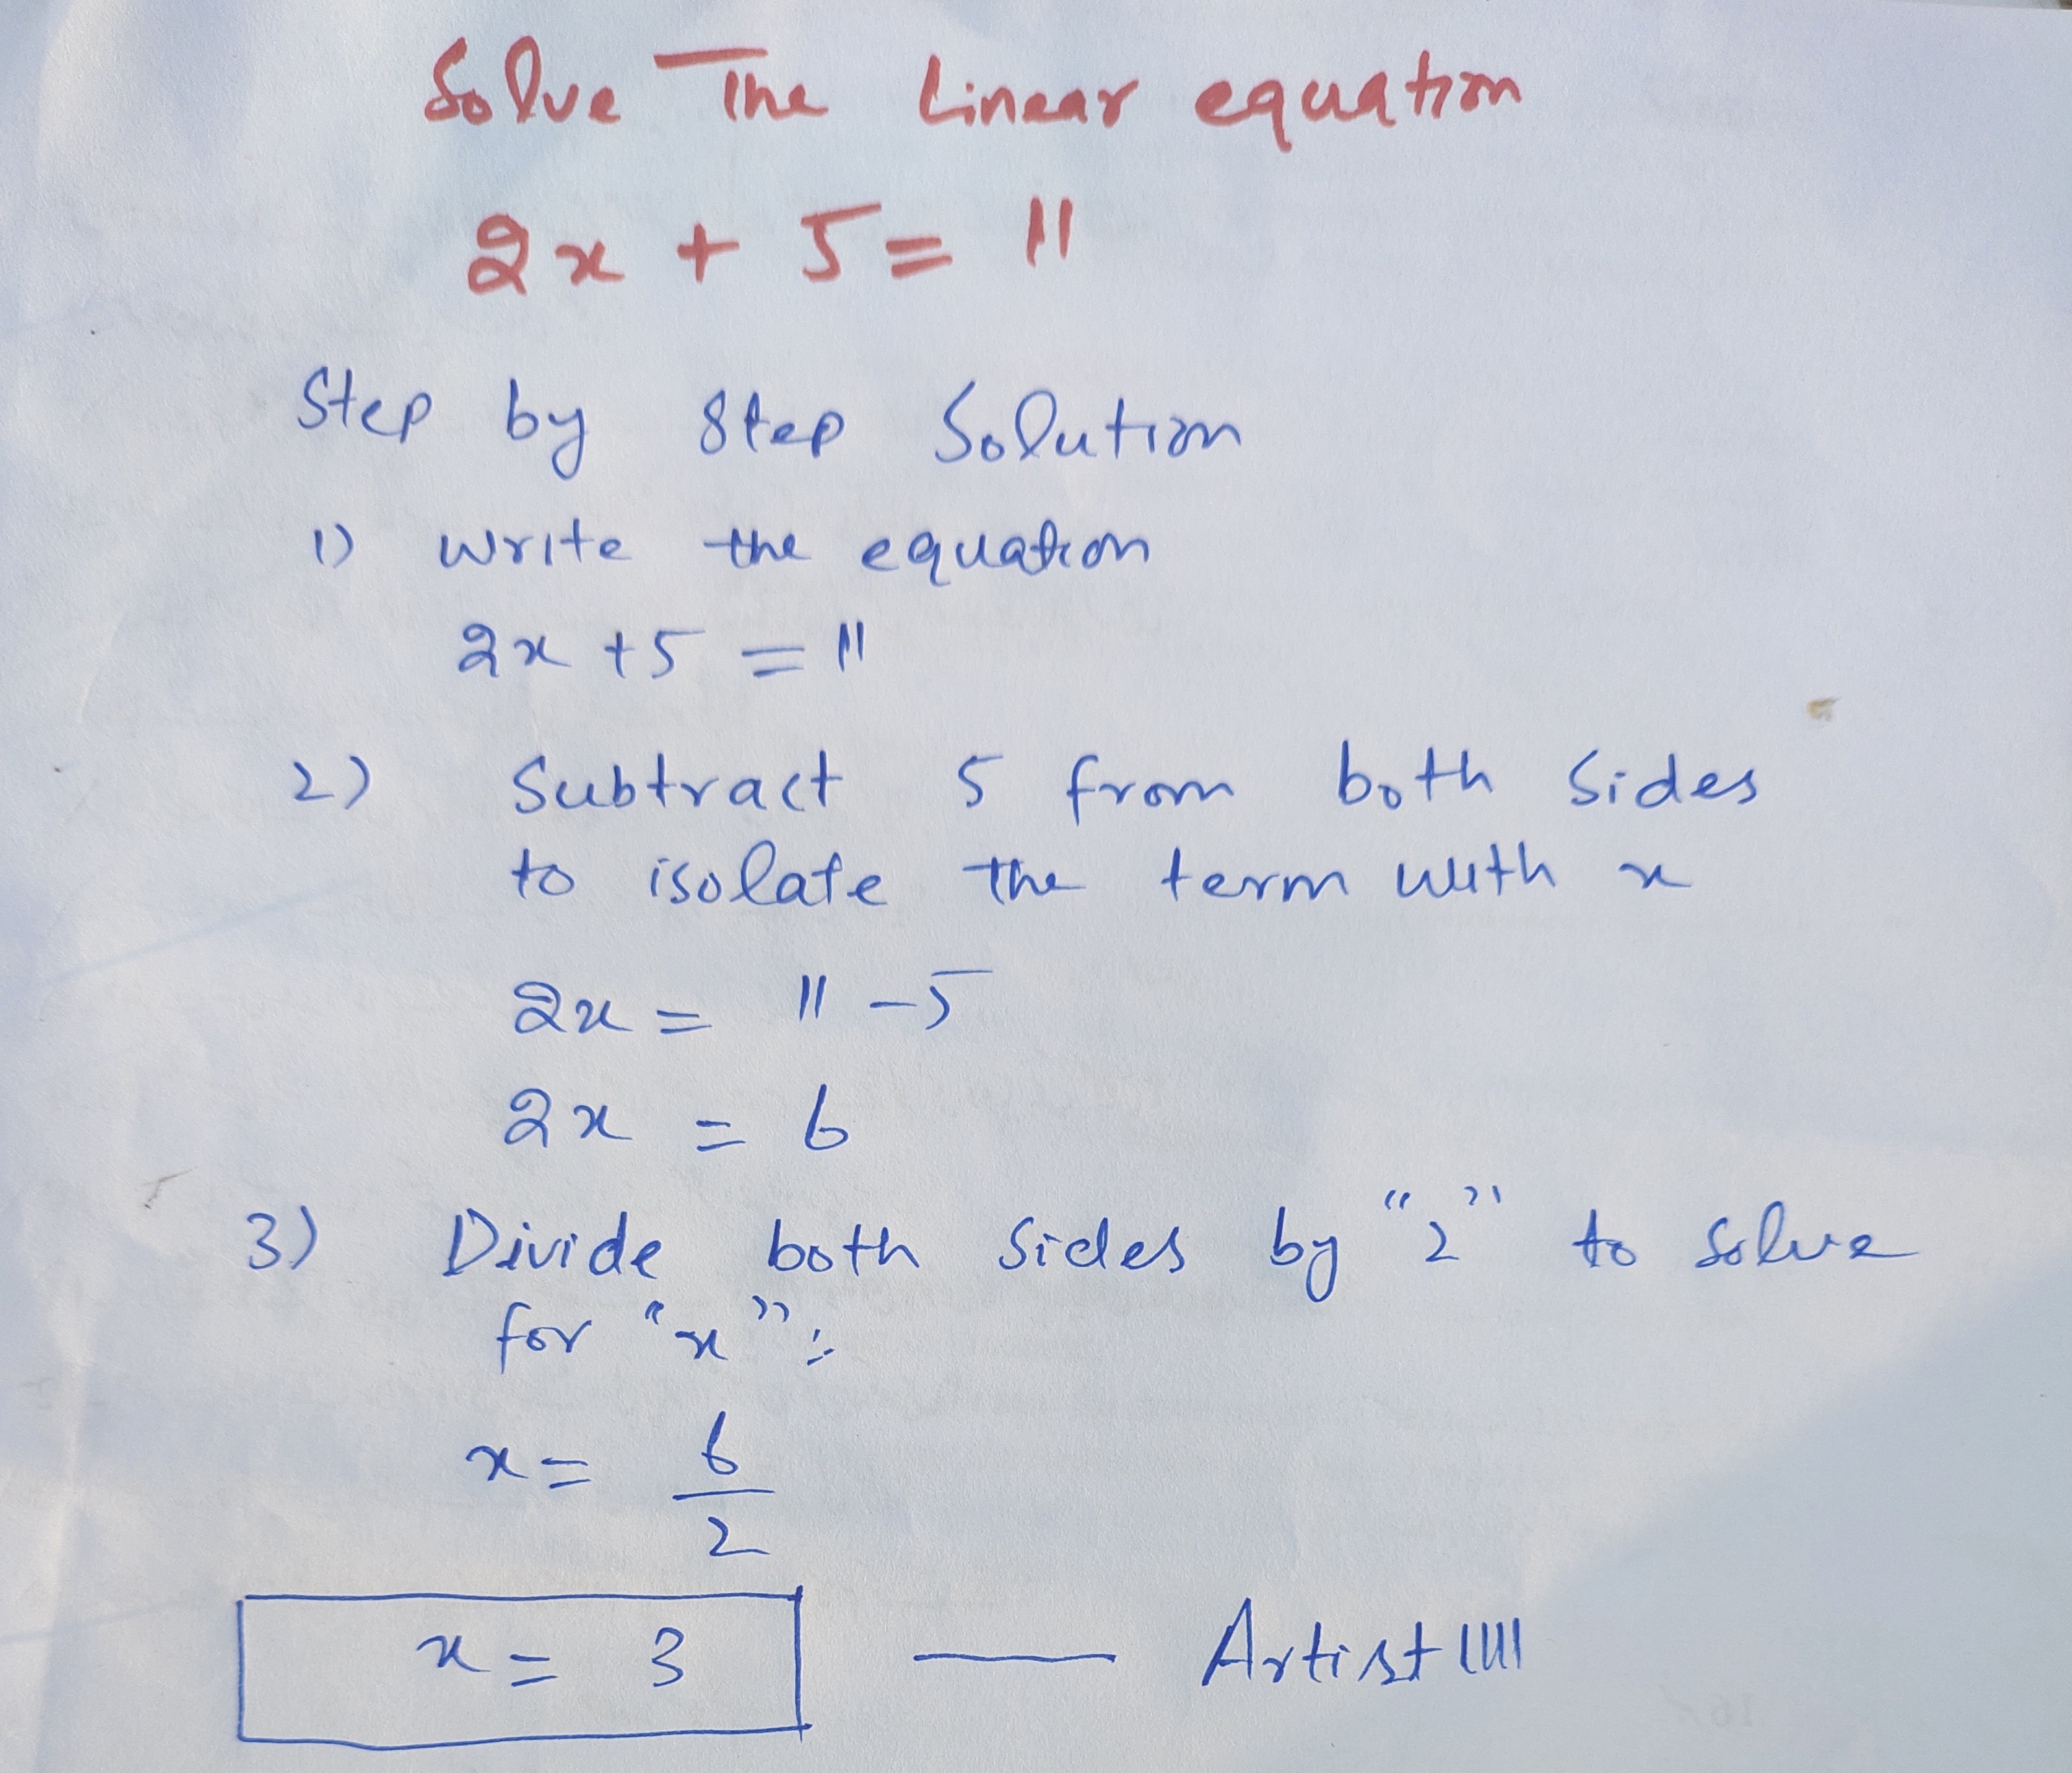 Solve The Linear equation
2x + 5 = 11
Step by Step Solution
1) Write the equation
2x + 5 = 11
2) Subtract 5 from both sides
to isolate the term with x
2x = 11 - 5
2x = 6
3) Divide both sides by "2" to solve
for "x":
x = 6/2
x = 3 — Artist1111